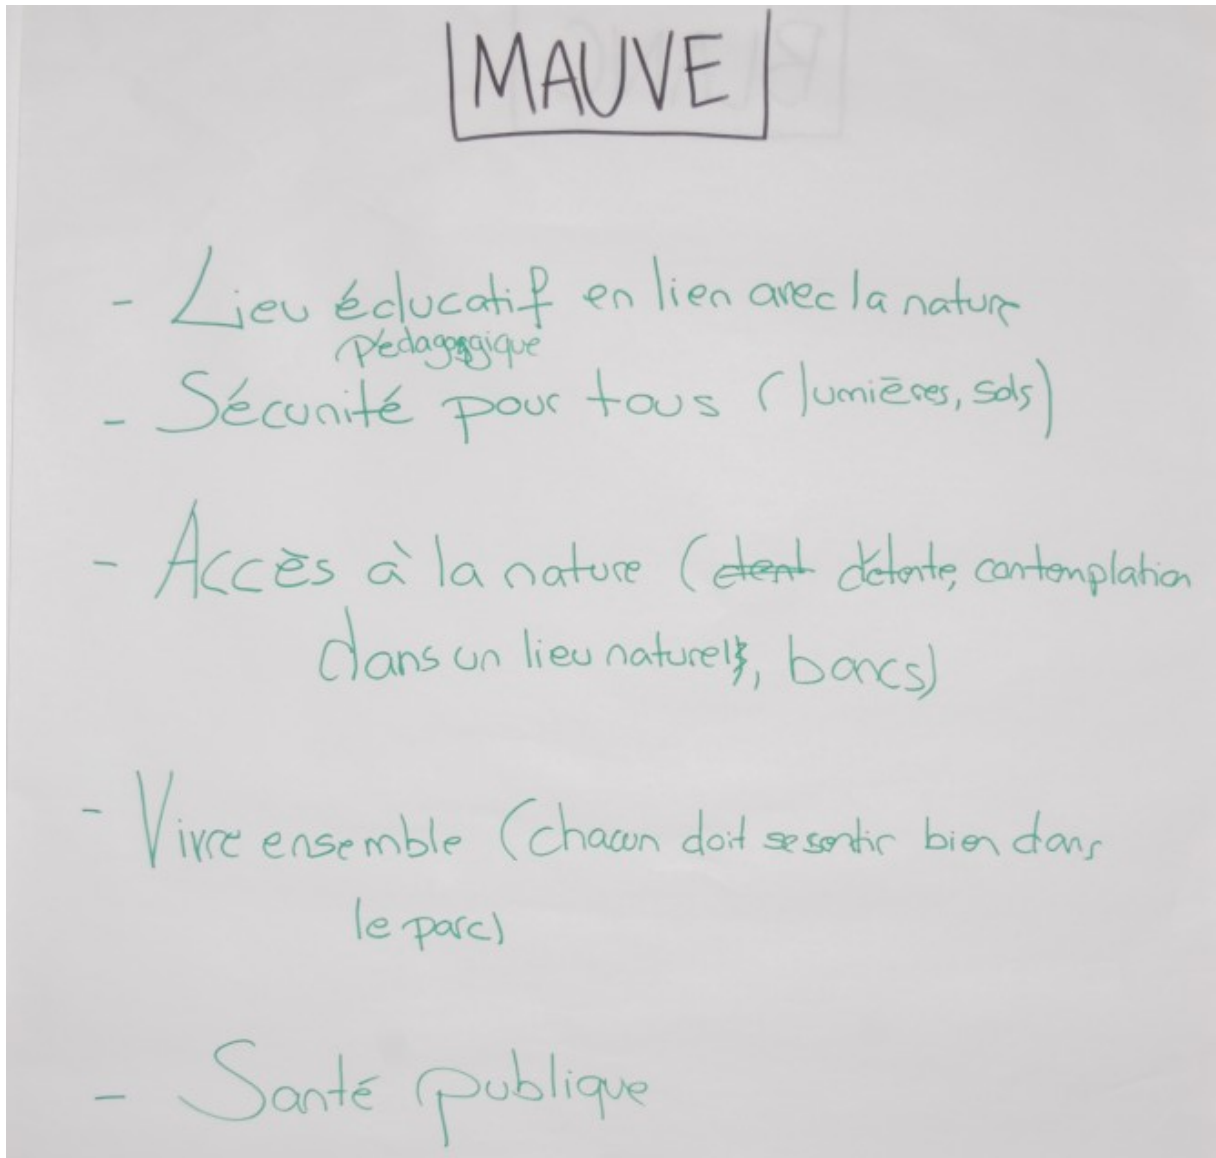 MAUVE
- Lieu éducatif en lien avec la nature
pédagogique
- Sécurité pour tous (lumières, sols)
- Accès à la nature (détente, contemplation
dans un lieu naturel, bancs)
- Vivre ensemble (chacun doit se sentir bien dans
le parc)
- Santé publique